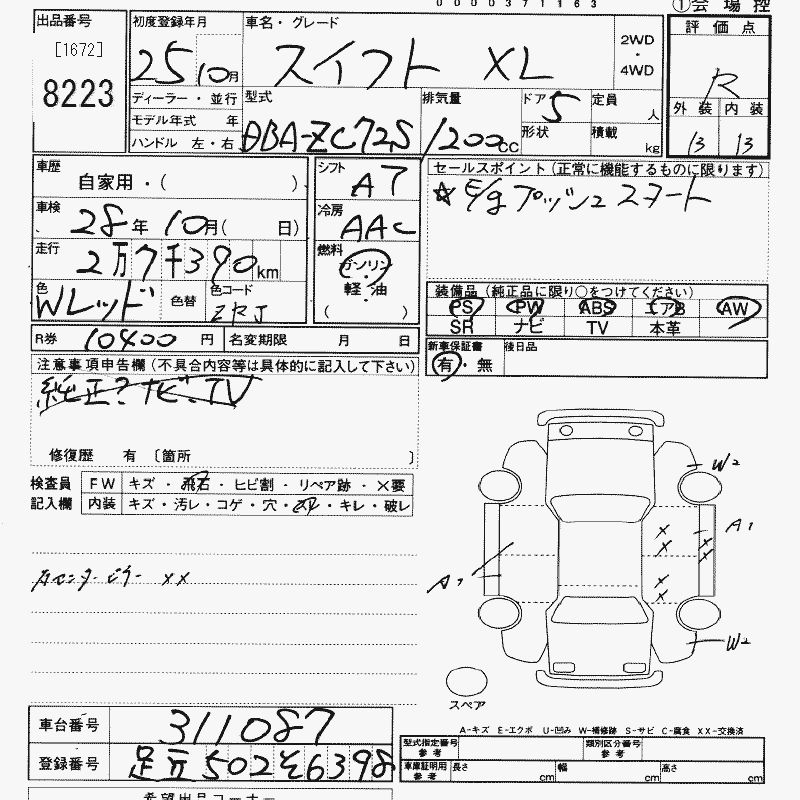 0 0 0 0 3 7 1 1 6 3
①会 場 控
出品番号
[1672]
8223
初度登録年月
25 10月
車名・グレード
スイフト XL
2WD
・
4WD
評 価 点
R
外 装 内 装
13 13
ディーラー・並行
モデル年式 年
ハンドル 左・右
型式
DBA-ZC72S
排気量
1200cc
ドア 5
形状
定員 人
積載 kg
車歴
自家用・( )
車検
28年 10月( 日)
走行
2万7千390km
色
Wレッド
色替
色コード
ZRJ
シフト
AT
冷房
AAC
燃料
ガソリン
・
軽・油
( )
セールスポイント(正常に機能するものに限ります)
☆E/gプッシュスタート
装備品(純正品に限り○をつけてください)
PS PW ABS エアB AW
SR ナビ TV 本革
R券 10400 円
名変期限 月 日
新車保証書
有・無
後日品
注意事項申告欄(不具合内容等は具体的に記入して下さい)
純正?ナビ.TV
修復歴 有 〔箇所 〕
検査員
記入欄
FW キズ・飛石・ヒビ割・リペア跡・×要
内装 キズ・汚レ・コゲ・穴・スレ・キレ・破レ
センターピラー ××
W2
A1
××
××
××
A2
W2
スペア
A-キズ E-エクボ U-凹み W-補修跡 S-サビ C-腐食 XX-交換済
車台番号 311087
登録番号 足立502そ6398
型式指定番号
参考
類別区分番号
参考
車庫証明用
参考
長さ cm 幅 cm 高さ cm
希望出品コーナー